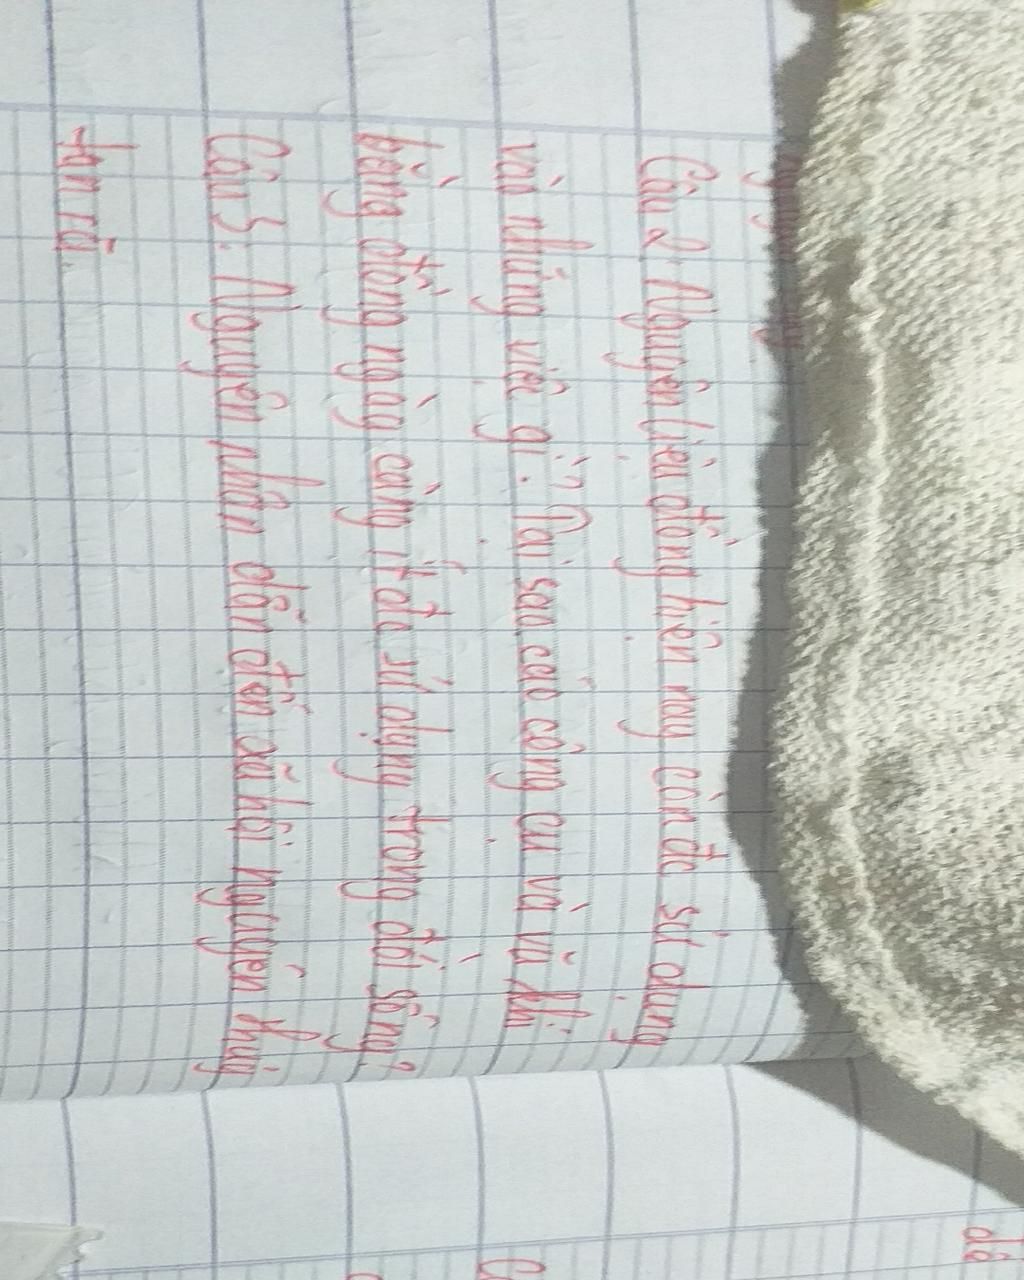 Câu 2: Nguyên liệu đồng hiện nay còn đc sử dụng
vào những việc gì? Tại sao các công cụ và vũ khí
bằng đồng ngày càng ít đc sử dụng trong đời sống?
Câu 3: Nguyên nhân dẫn đến xã hội nguyên thủy
tan rã.